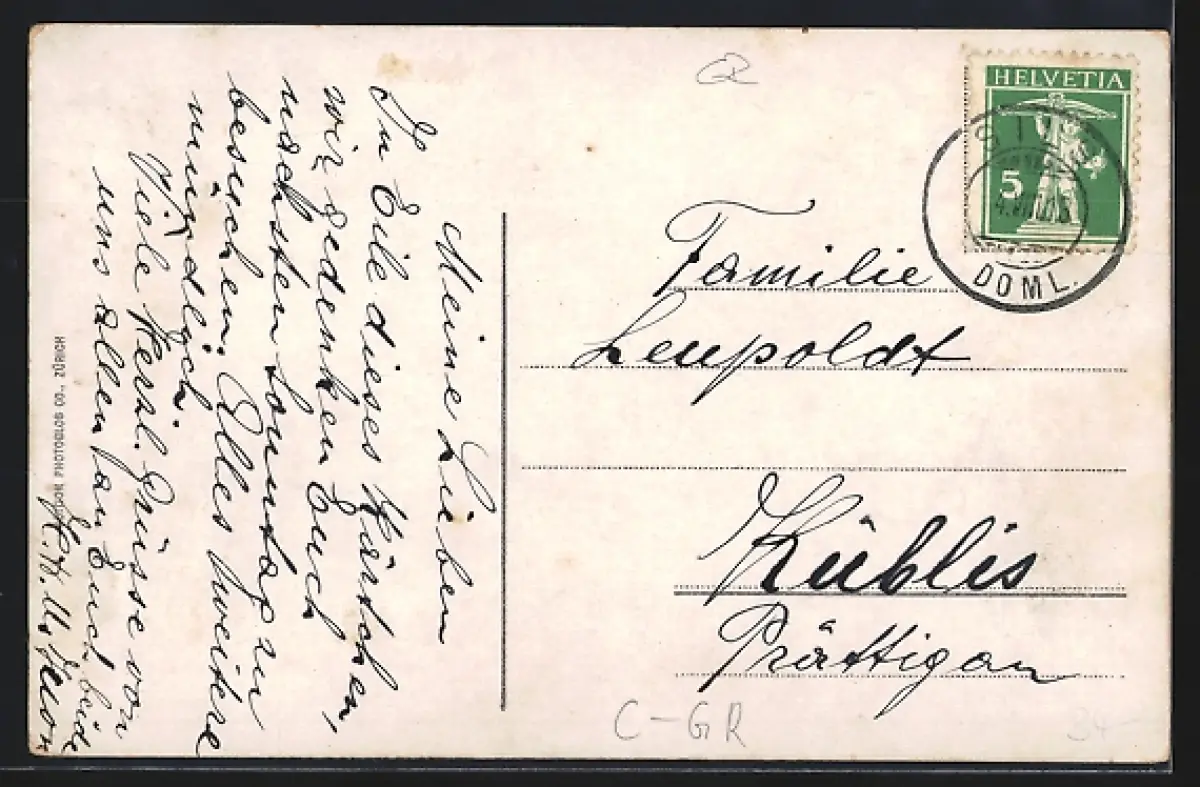 Meine Lieben
In Eile dieses Kärtchen,
wir gedenken Euch
nächsten Sonntag zu
besuchen. Alles weitere
mündlich.
Viele herzl. Grüsse von
uns allen an Euch beide
PHOTOGLOB CO., ZÜRICH
HELVETIA
5
SILS
DOML.
Familie
Leupoldt
Küblis
Prättigau
C-GR
34